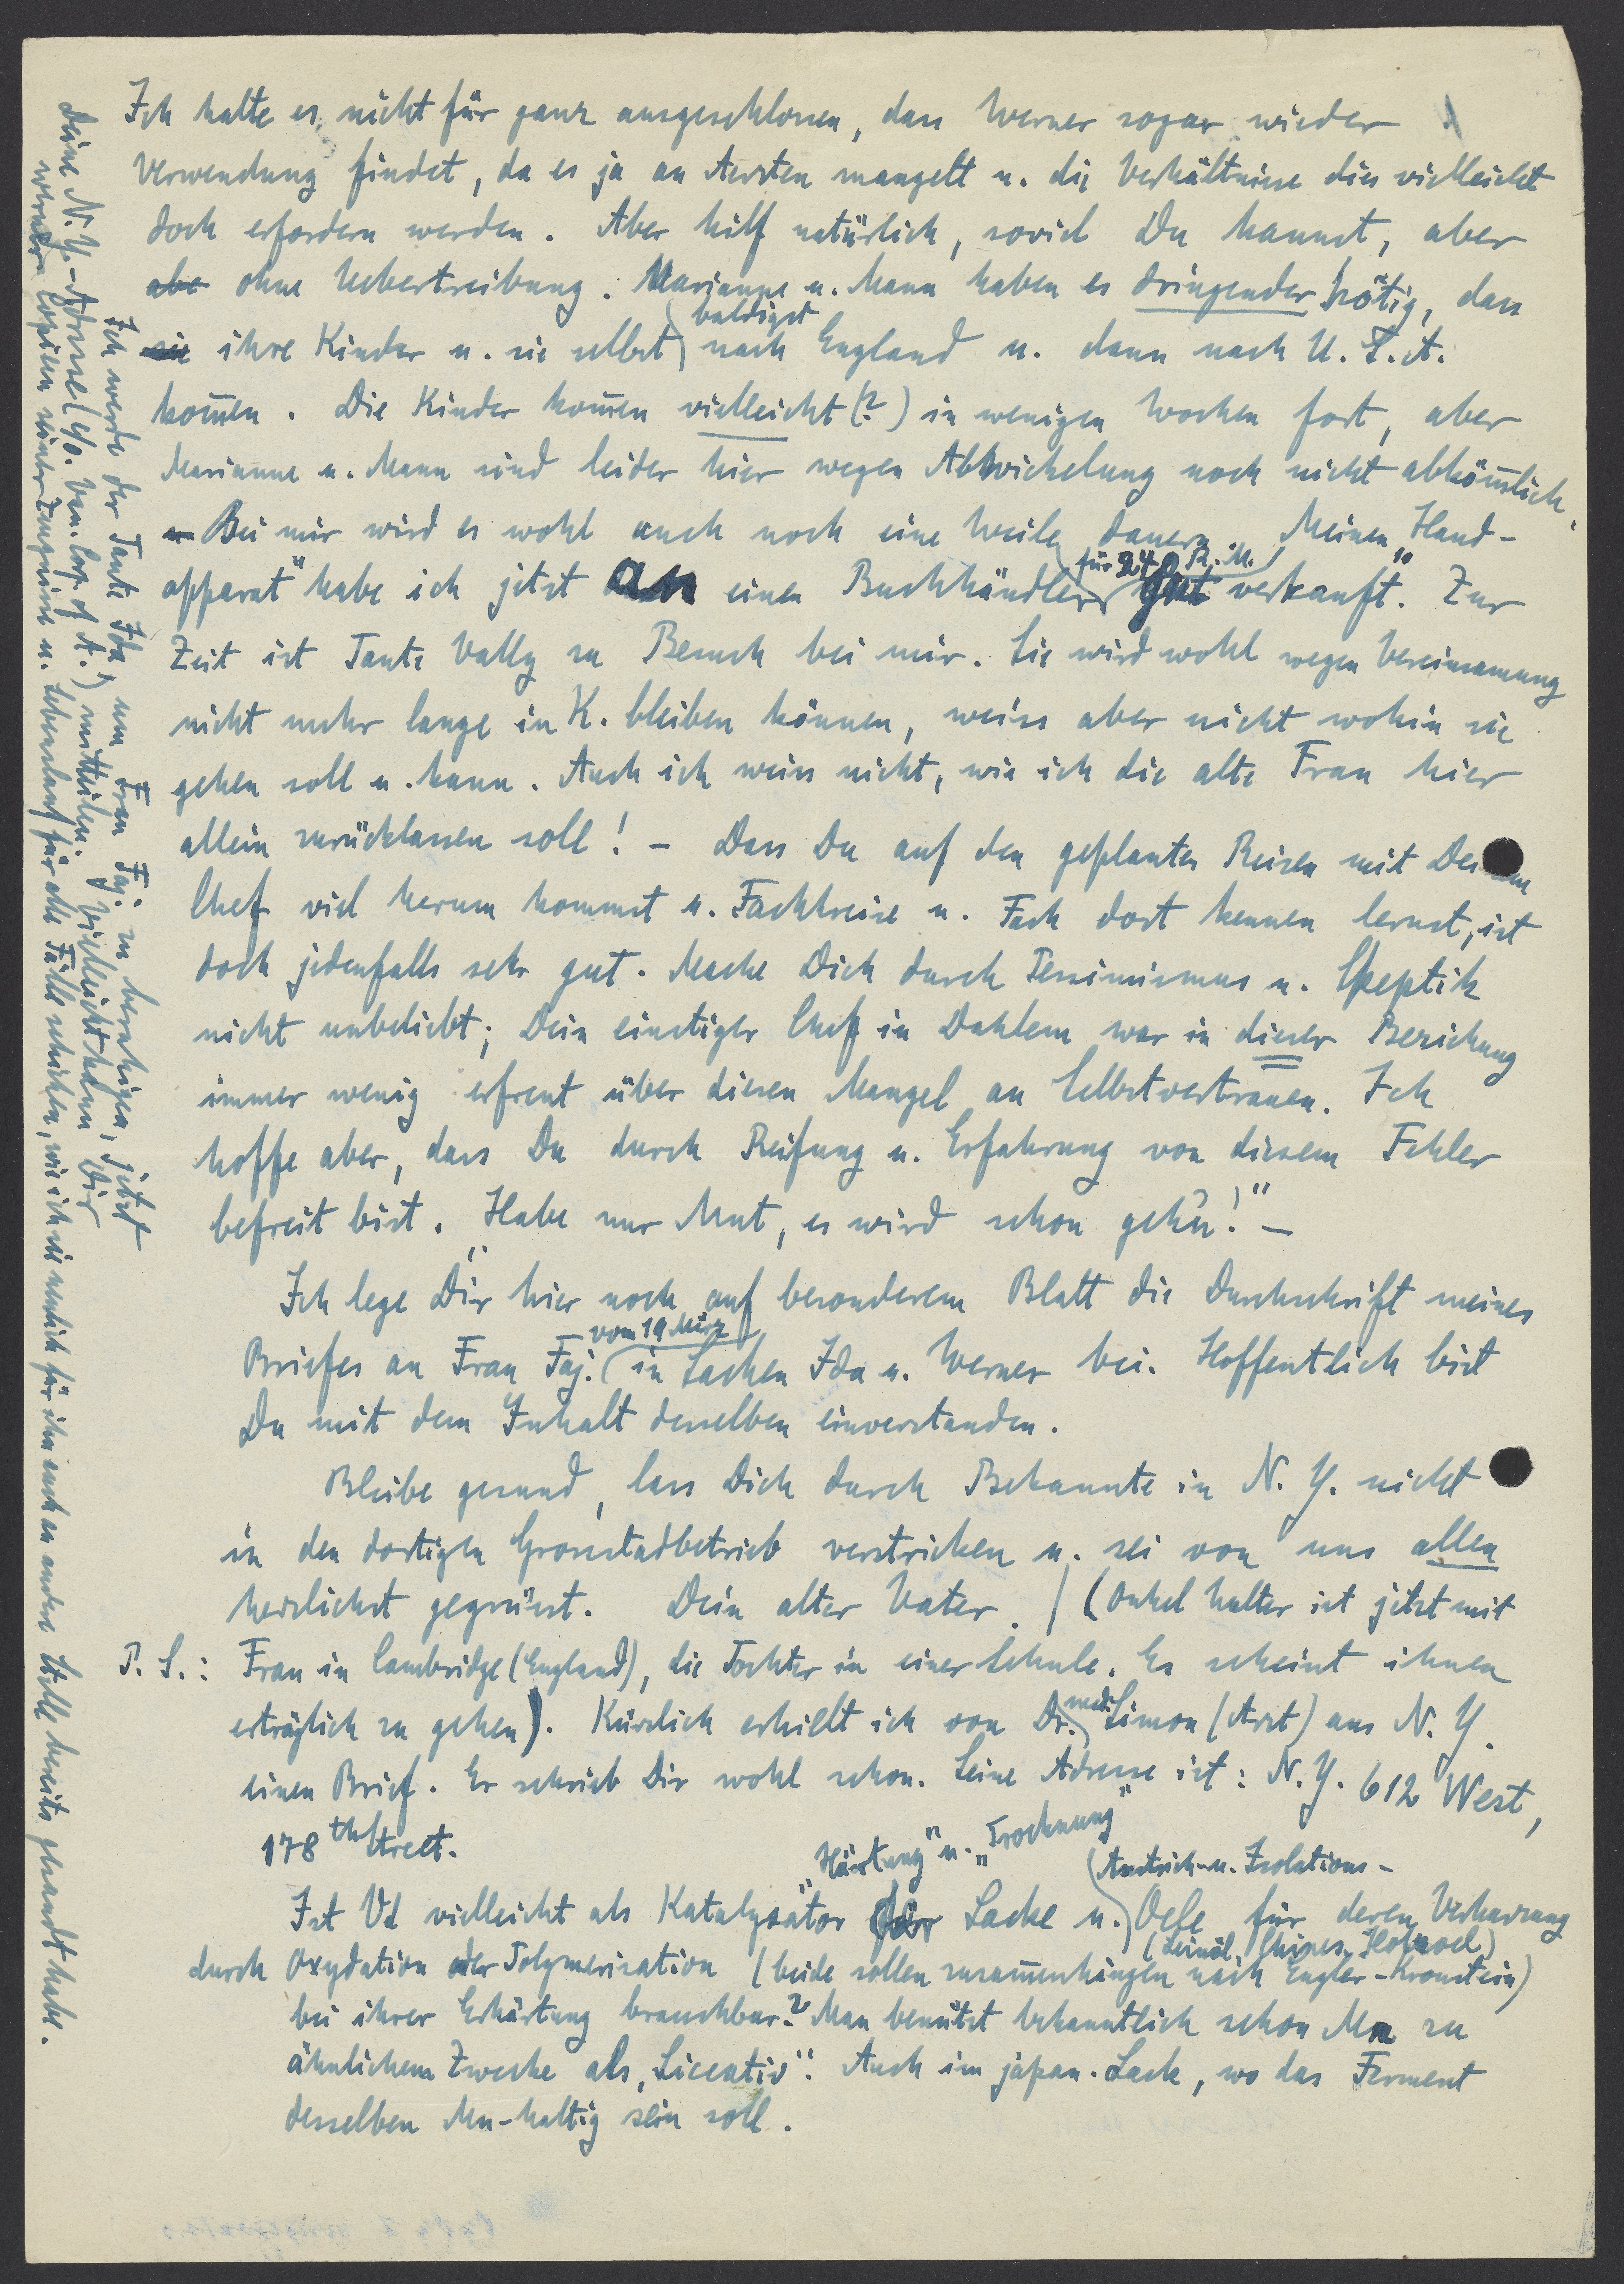 Ich halte es nicht für ganz ausgeschlossen, dass Werner sogar wieder
Verwendung findet, da es ja an Aerzten mangelt u. die Verhältnisse dies vielleicht
doch erfordern werden. Aber hilf natürlich, soviel Du kannst, aber
abe ohne Uebertreibung. Marianne u. Mann haben es dringender nötig, dass
baldigst
sie ihre Kinder u. sie selbst nach England u. dann nach U.S.A.
kom̅en. Die Kinder kom̅en vielleicht (?) in wenigen Wochen fort, aber
Marianne u. Mann sind leider hier wegen Abwickelung noch nicht abköm̅lich.
u Bei mir wird es wohl auch noch eine Weile dauern. Meinen „Hand-
für 240 R.M.
apparat" habe ich jetzt an einen Buchhändler gut verkauft". Zur
Zeit ist Tante Vally zu Besuch bei mir. Sie wird wohl wegen Vereinsamung
nicht mehr lange in K. bleiben können, weiss aber nicht wohin sie
gehen soll u. kann. Auch ich weiss nicht, wie ich die alte Frau hier
allein zurücklassen soll! – Dass Du auf den geplanten Reisen mit Deinem
Chef viel herum kommst u. Fachkreise u. Fach dort kennen lernst, ist
doch jedenfalls sehr gut. Mache Dich durch Pessimismus u. Skeptik
nicht unbeliebt; Dein einstiger Chef in Dahlem war in dieser Beziehung
immer wenig erfreut über diesen Mangel an Selbstvertrauen. Ich
hoffe aber, dass Du durch Reifung u. Erfahrung von diesem Fehler
befreit bist. „Habe nur Mut, es wird schon geh'n!" –
Ich lege Dir hier noch auf besonderem Blatt die Durchschrift meines
vom 19 März
Briefes an Frau Faj. in Sachen Ida u. Werner bei. Hoffentlich bist
Du mit dem Inhalt desselben einverstanden.
Bleibe gesund, lass Dich durch Bekannte in N.Y. nicht
in den dortigen Grossstadbetrieb verstricken u. sei von uns allen
herzlichst gegrüsst. Dein alter Vater. / (Onkel Walter ist jetzt mit
P.S.: Frau in Cambridge (England), die Tochter in einer Schule. Es scheint ihnen
erträglich zu gehen). Kürzlich erhielt ich von Dr. med. Simon (Arzt) aus N.Y.
einen Brief. Er schrieb Dir wohl schon. Seine Adresse ist: N.Y. 612 West,
178th Street.
„Härtung" u. „Trocknung"
Anstrich- u. Isolations-
Ist Vd vielleicht als Katalysator für Lacke u. Oele für deren Verharzung
(Leinöl, Chines. Holzoel)
durch Oxydation oder Polymerisation (beide sollen zusam̅enhängen nach Engler-Kronstein)
bei ihrer Erhärtung brauchbar? Man benützt bekanntlich schon Mn zu
ähnlichem Zwecke als „Siccativ". Auch im japan. Lack, wo das Ferment
desselben Mn-haltig sein soll.
Ich werde der Tante Ida, um Frau Faj. zu beruhigen, jetzt
deine N.Y.-Adresse (c/o. Van. Corp. of A.) mitteilen. Vielleicht kann Dir
Werner Copien seiner Zeugnisse u. Lebenslauf für alle Fälle schicken, wie ich sie neulich für ihn auch an andere Stelle bereits gesandt habe.